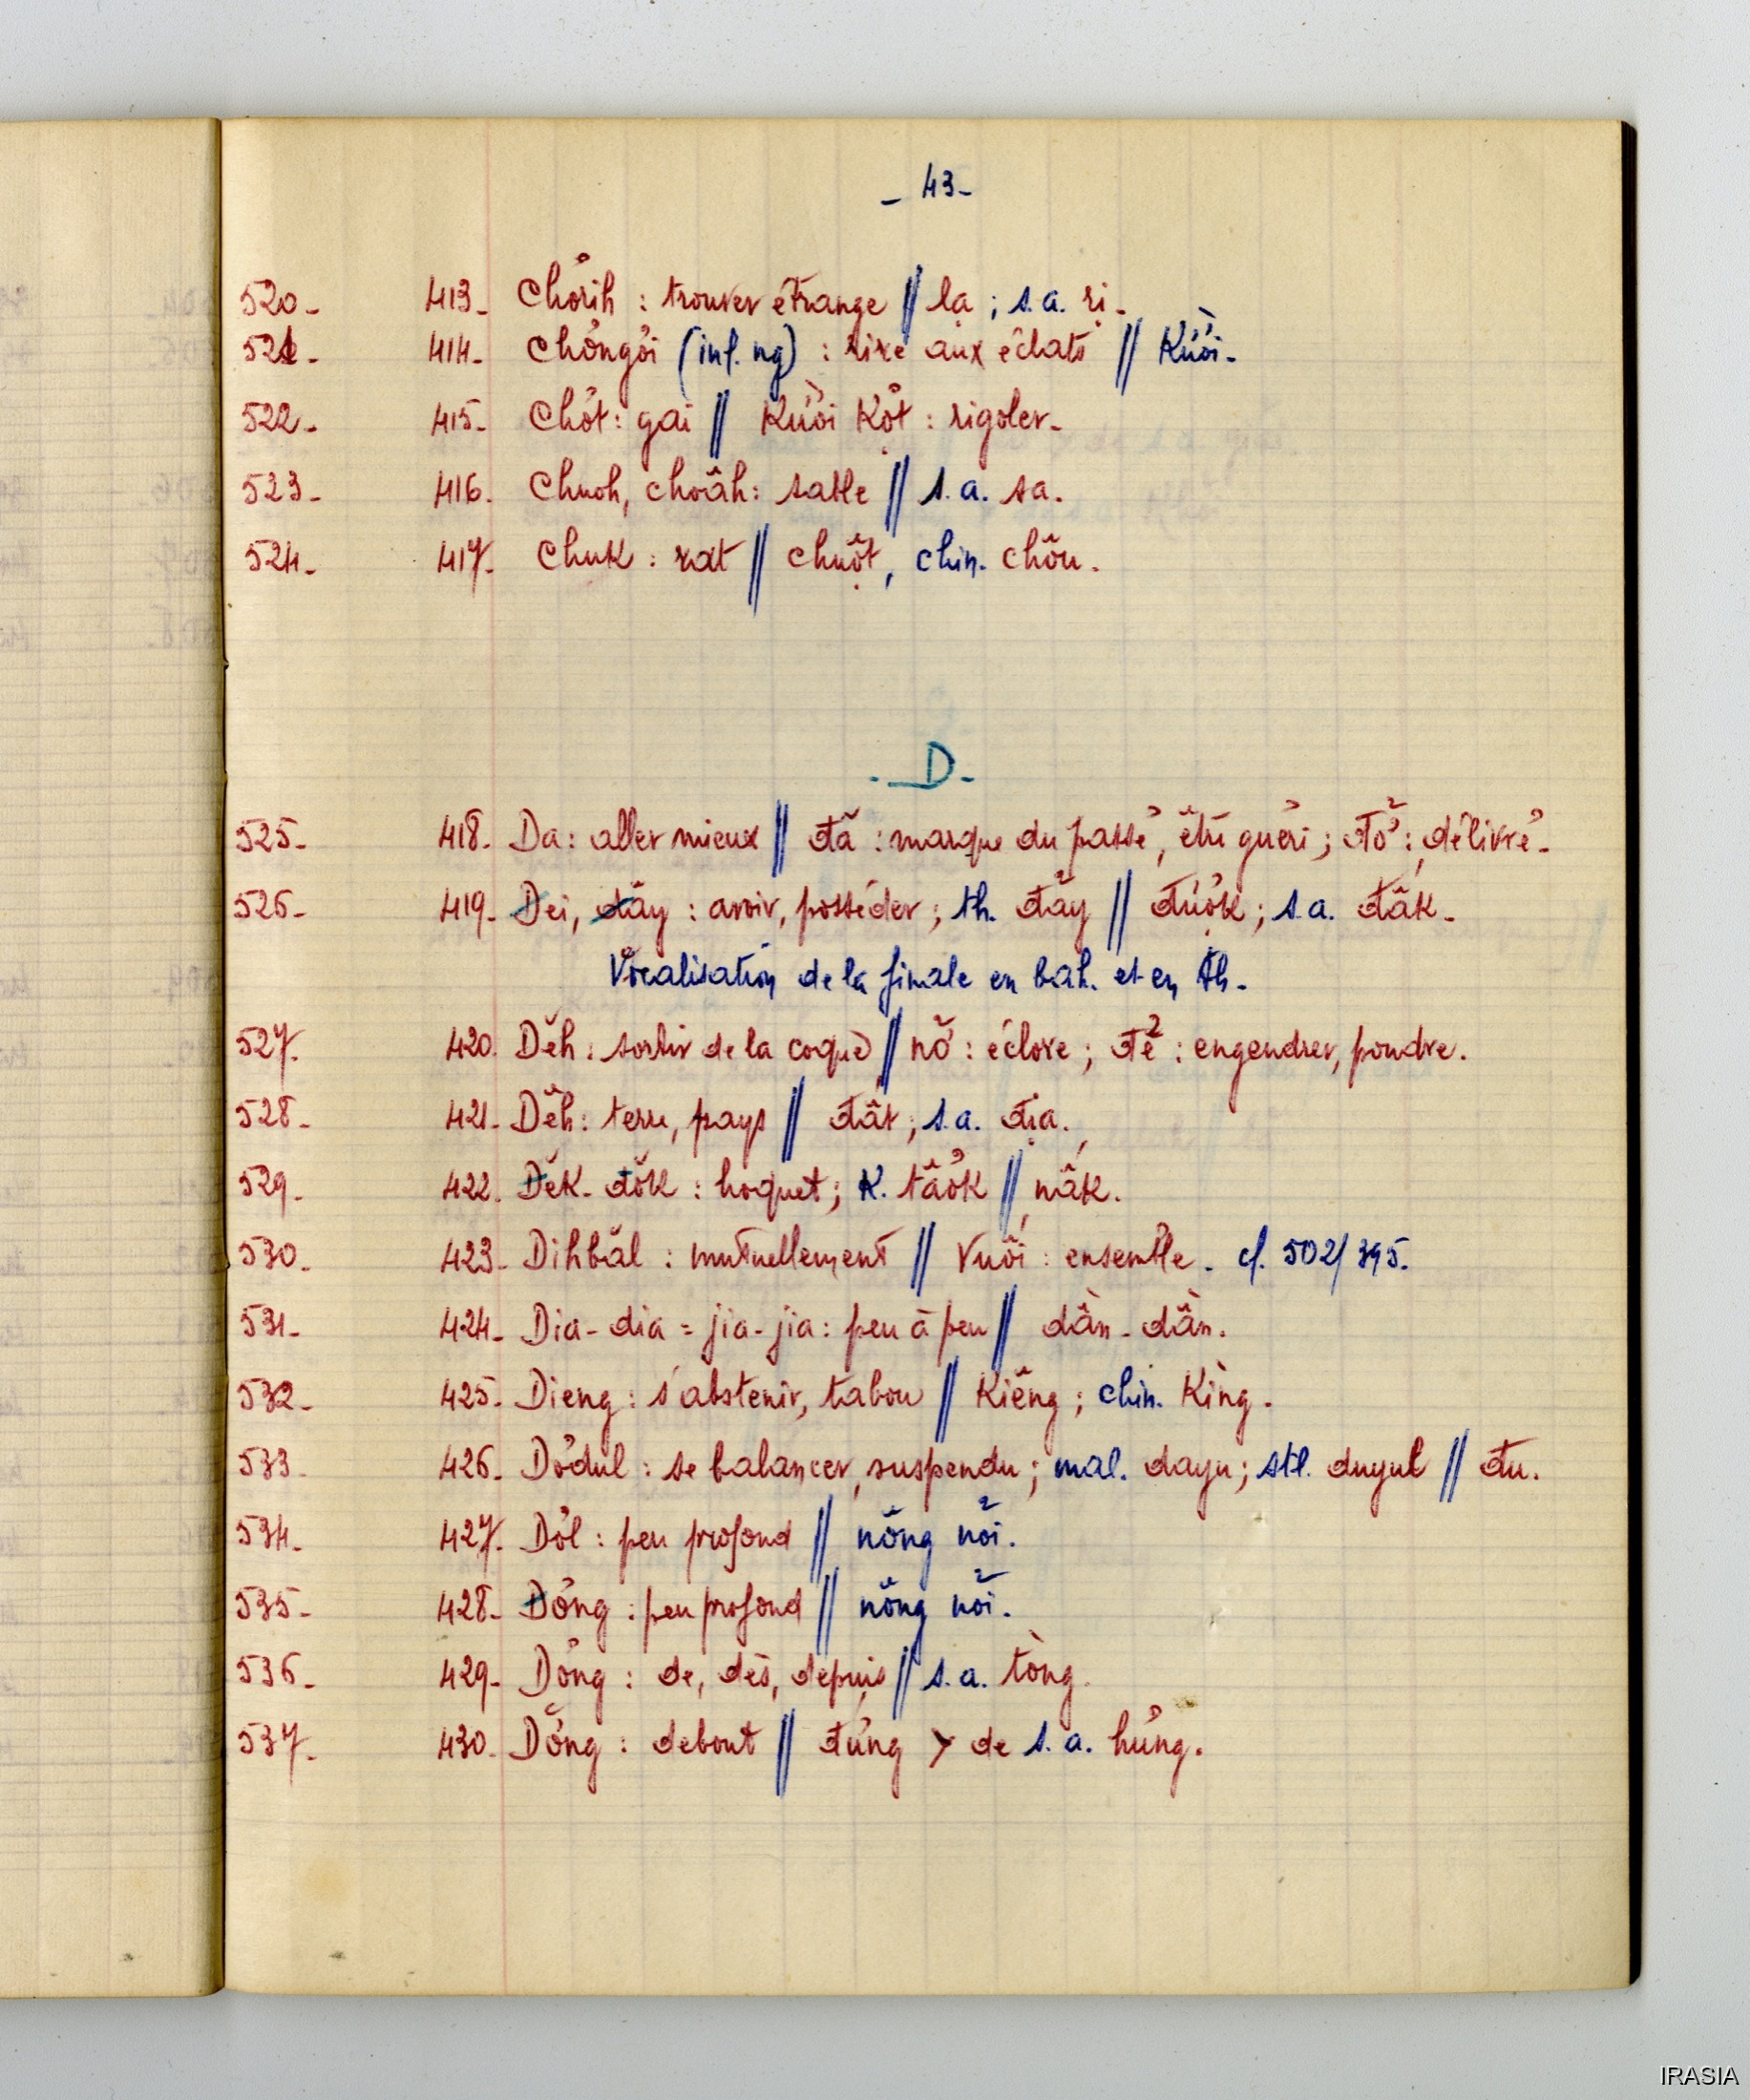 - 43-
520- 413- Chơrih : trouver étrange // lạ ; s.a. rị-
521- 414- Chơngơi (inf. ng) : rire aux éclats // Kười-
522- 415- Chơt : gai // Kười Kợt : rigoler-
523- 416. Chuoh, choăh : sable // s.a. sa.
524- 417- Chuk : rat // chuột, chin. chôu.
.D-
525- 418. Da : aller mieux // đã : marque du passé, être guéri ; đở : délivré-
526- 419- Dei, đăy : avoir, posséder ; th. đăy // được ; s.a. đăk-
Vocalisation de la finale en bah. et en th-
527. 420. Dĕh : sortir de la coque // nở : éclore ; đẻ : engendrer, pondre.
528- 421- Dĕh : terre, pays // đất ; s.a. địa.
529- 422. Dĕk-đŏk : hoquet ; K. tâơk // nấk.
530- 423- Dihbăl : mutuellement // Vuối : ensemble. cf. 502/395.
531- 424- Dia-dia = jia-jia : peu à peu // dần-dần.
532- 425- Dieng : s'abstenir, tabou // Kiêng ; chin. Kìng.
533- 426- Dơdul : se balancer, suspendu ; mal. dayu ; stl. duyul // đu.
534- 427- Dơl : peu profond // nông nổi.
535- 428- Dơng : peu profond // nông nổi.
536- 429- Dơng : de, dès, depuis // s.a. tòng.
537- 430- Dơ̆ng : debout // đứng > de s.a. hưng.
IRASIA